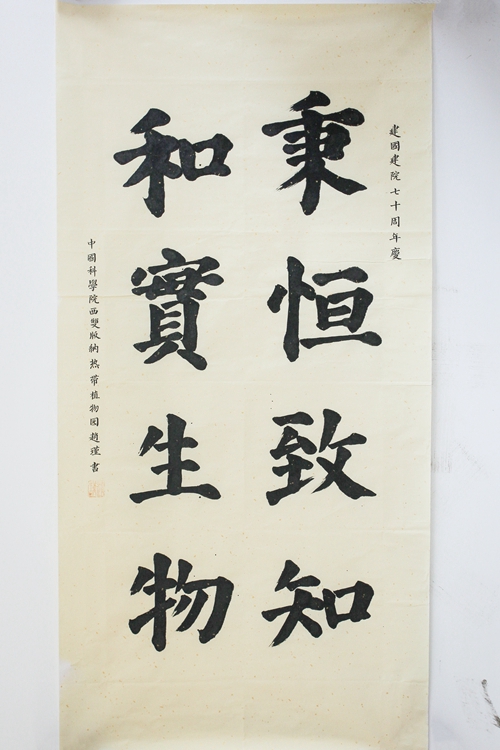 建國建院七十周年慶
秉恒致知
和實生物
中國科學院西雙版納热帶植物园趙瑾書